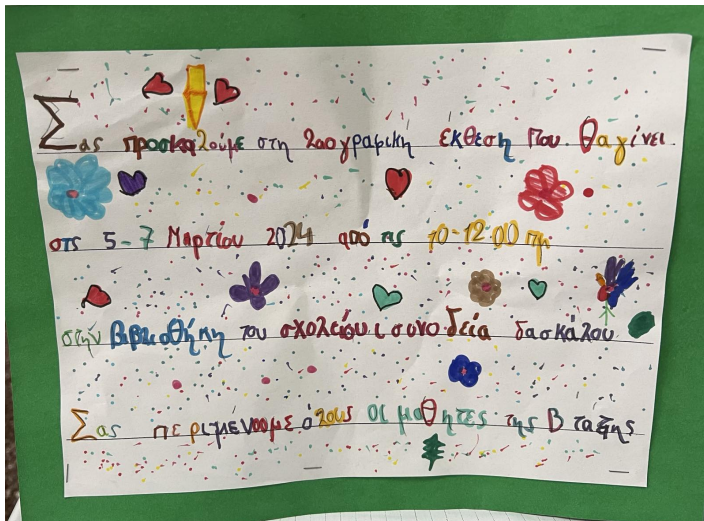 Σας προσκαλούμε στη λαογραφικη έκθεση που θα γίνει
στς 5-7 Μαρτίου 2024 από τις 10-12:00 πμ
στήν βιβλιοθήκη του σχολείου ι συνοδεία δασκάλου
Σας περιμένουμε όλους οι μαθητες της Β ταξης